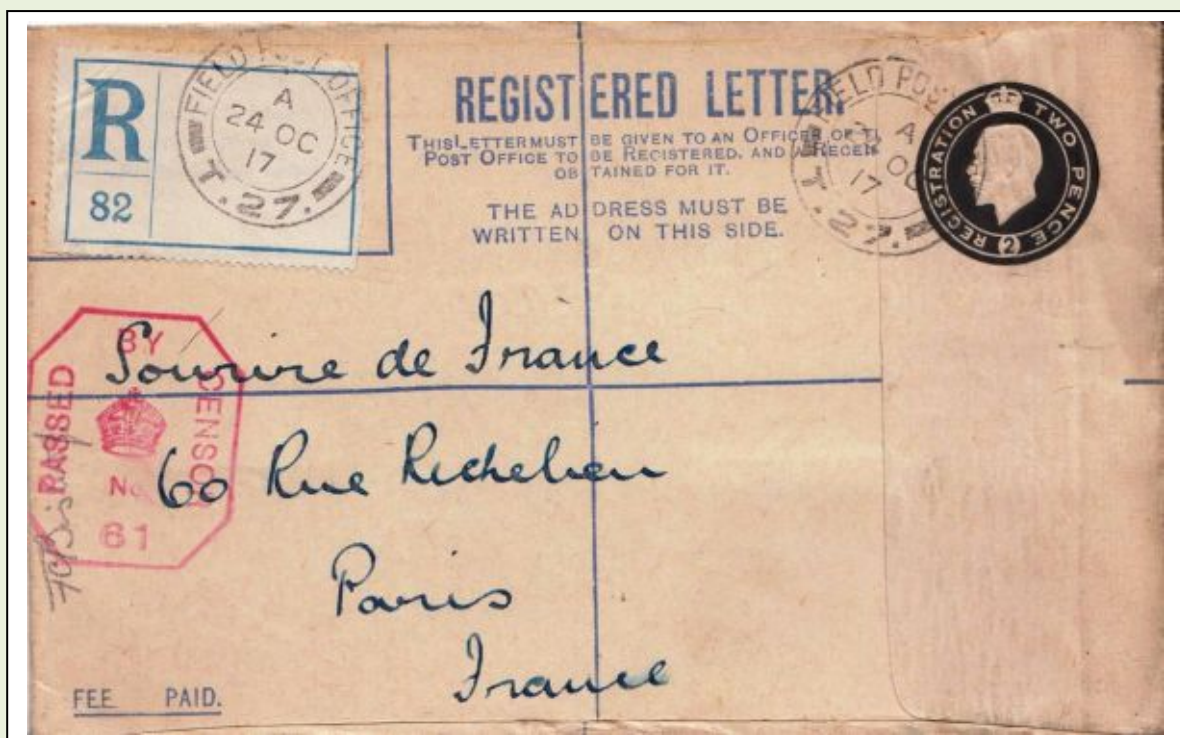 R
82
FIELD POST OFFICE
A
24 OC
17
T.27.
REGISTERED LETTER.
THIS LETTER MUST BE GIVEN TO AN OFFICER OF
POST OFFICE TO BE REGISTERED, AND A RECEI
OBTAINED FOR IT.
THE ADDRESS MUST BE
WRITTEN ON THIS SIDE.
FIELD POS
A
OC
17
T.27.
REGISTRATION TWO PENCE
2
PASSED BY CENSOR
No
61
Sourire de France
60 Rue Richelieu
Paris
France
FEE PAID.